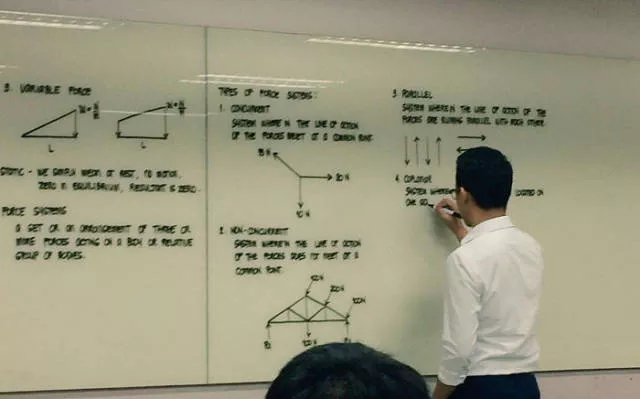 3. VARIABLE FORCE
L
L
STATIC - WE SIMPLY MEAN AT REST, NO MOTION,
ZERO IN EQUILIBRIUM, RESULTANT IS ZERO.
FORCE SYSTEMS
A SET OR AN ARRANGEMENT OF THREE OR
MORE FORCES ACTING ON A BODY OR RELATIVE
GROUP OF BODIES.
TYPES OF FORCE SYSTEMS:
1. CONCURRENT
SYSTEM WHERE IN THE LINE OF ACTION
OF THE FORCES MEET AT A COMMON POINT.
20 N
10 N
2. NON-CONCURRENT
SYSTEM WHERE IN THE LINE OF ACTION
OF THE FORCES DOES NOT MEET AT A
COMMON POINT.
3. PARALLEL
SYSTEM WHERE IN THE LINE OF ACTION OF THE
FORCES ARE RUNNING PARALLEL WITH EACH OTHER.
4. COPLANAR
SYSTEM WHEREIN LOCATED ON
ONE